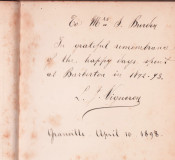 To Mrs S. Burden
In grateful remembrance
of the happy days spent
at Barberton in 1892-93.
L. J.
Granville April 10 1898.